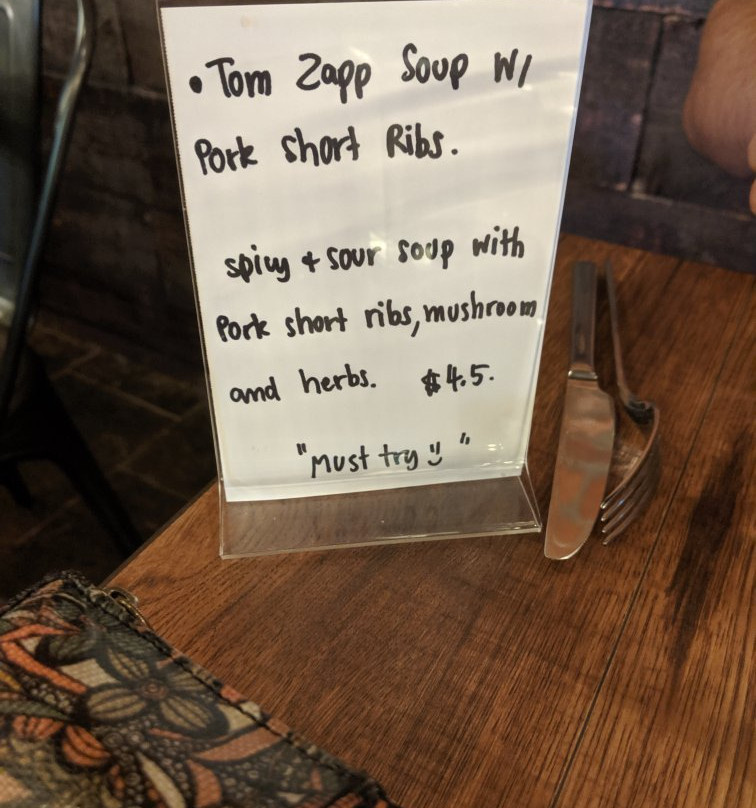 • Tom Zapp Soup W/
Pork Short Ribs.
spicy + sour soup with
Pork short ribs, mushroom
and herbs. $4.5.
"Must try ü"